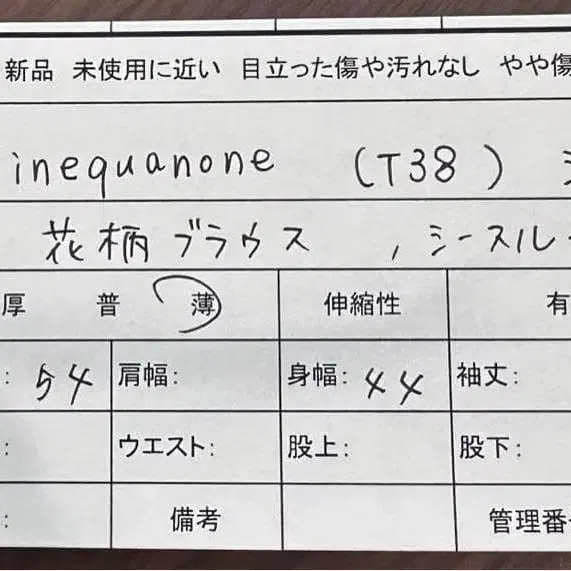 新品 未使用に近い 目立った傷や汚れなし やや傷
inequanone (T38)
花柄ブラウス , シースルー
厚 普 薄 伸縮性 有
: 54 肩幅: 身幅: 44 袖丈:
: ウエスト: 股上: 股下:
: 備考 管理番